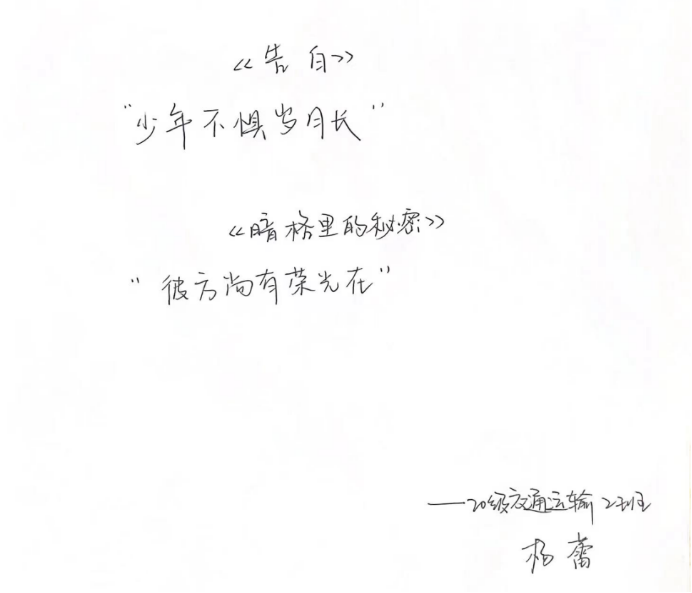 《告白》
“少年不惧岁月长”
《暗格里的秘密》
“彼方尚有荣光在”
——20级交通运输2班
杨蕾